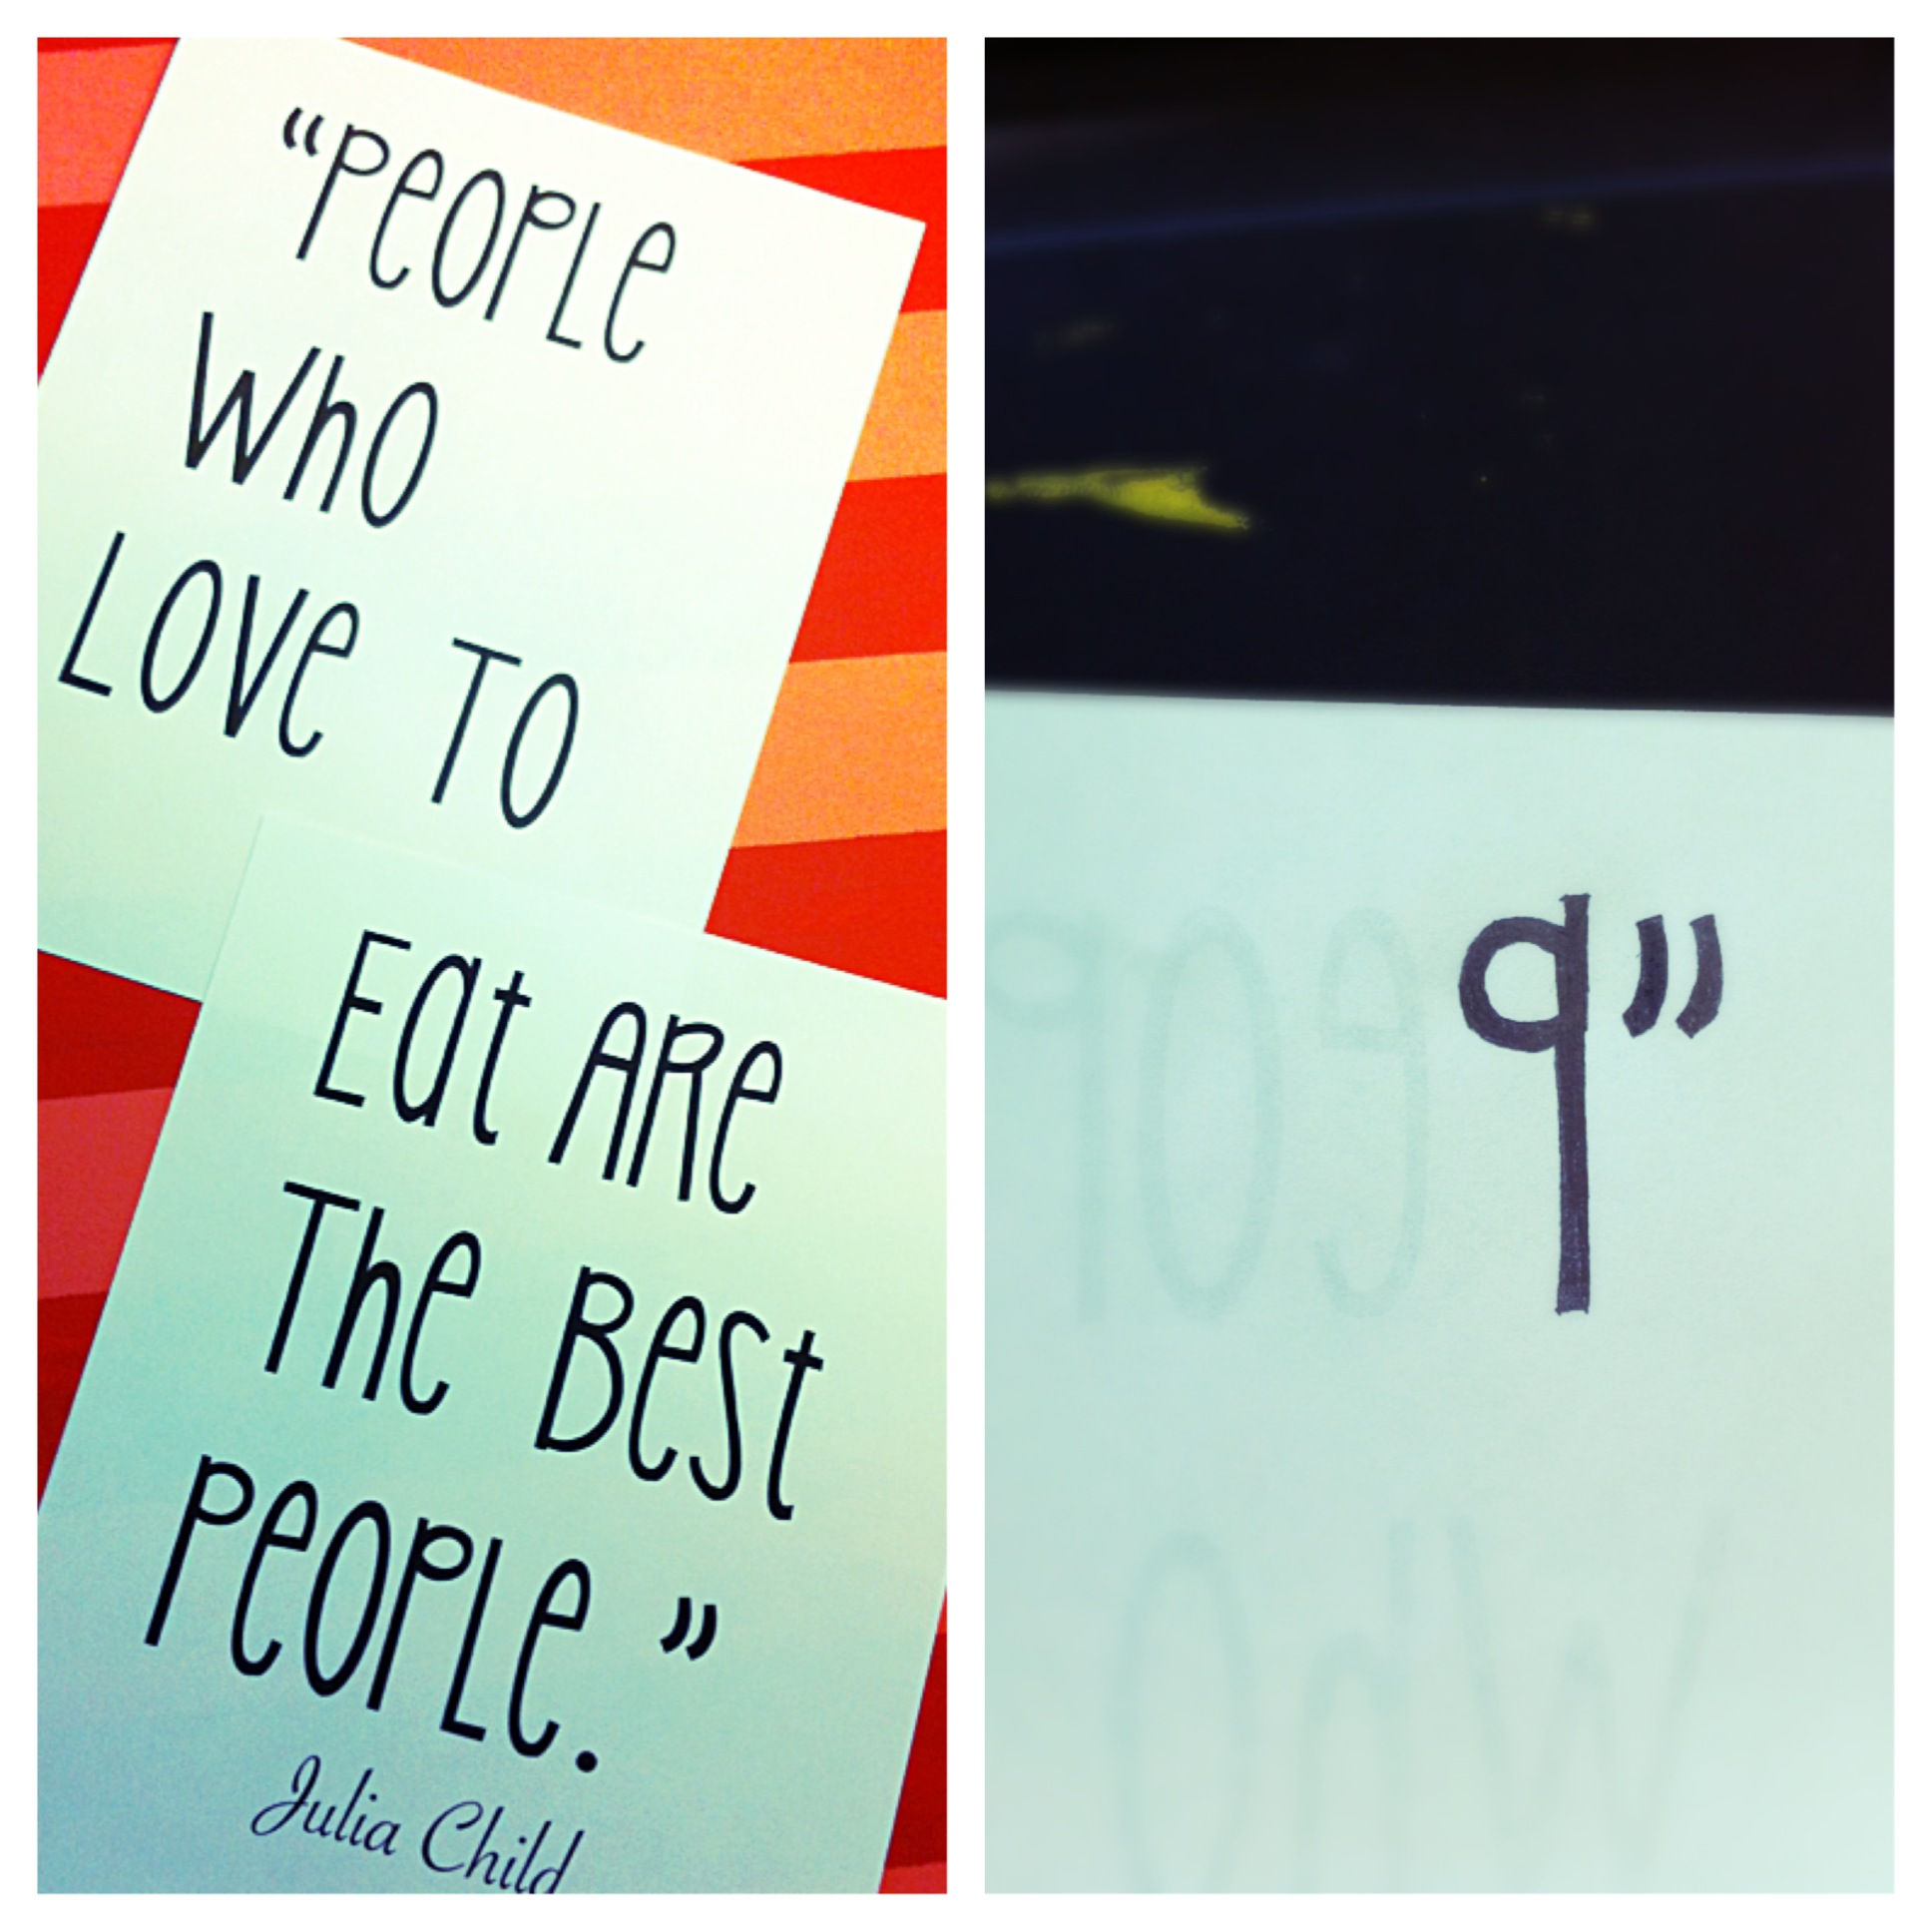 “PEOPLE
WhO
LOVe TO
Eat ARe
The BesT
PEOPLE.”
Julia Child
q”